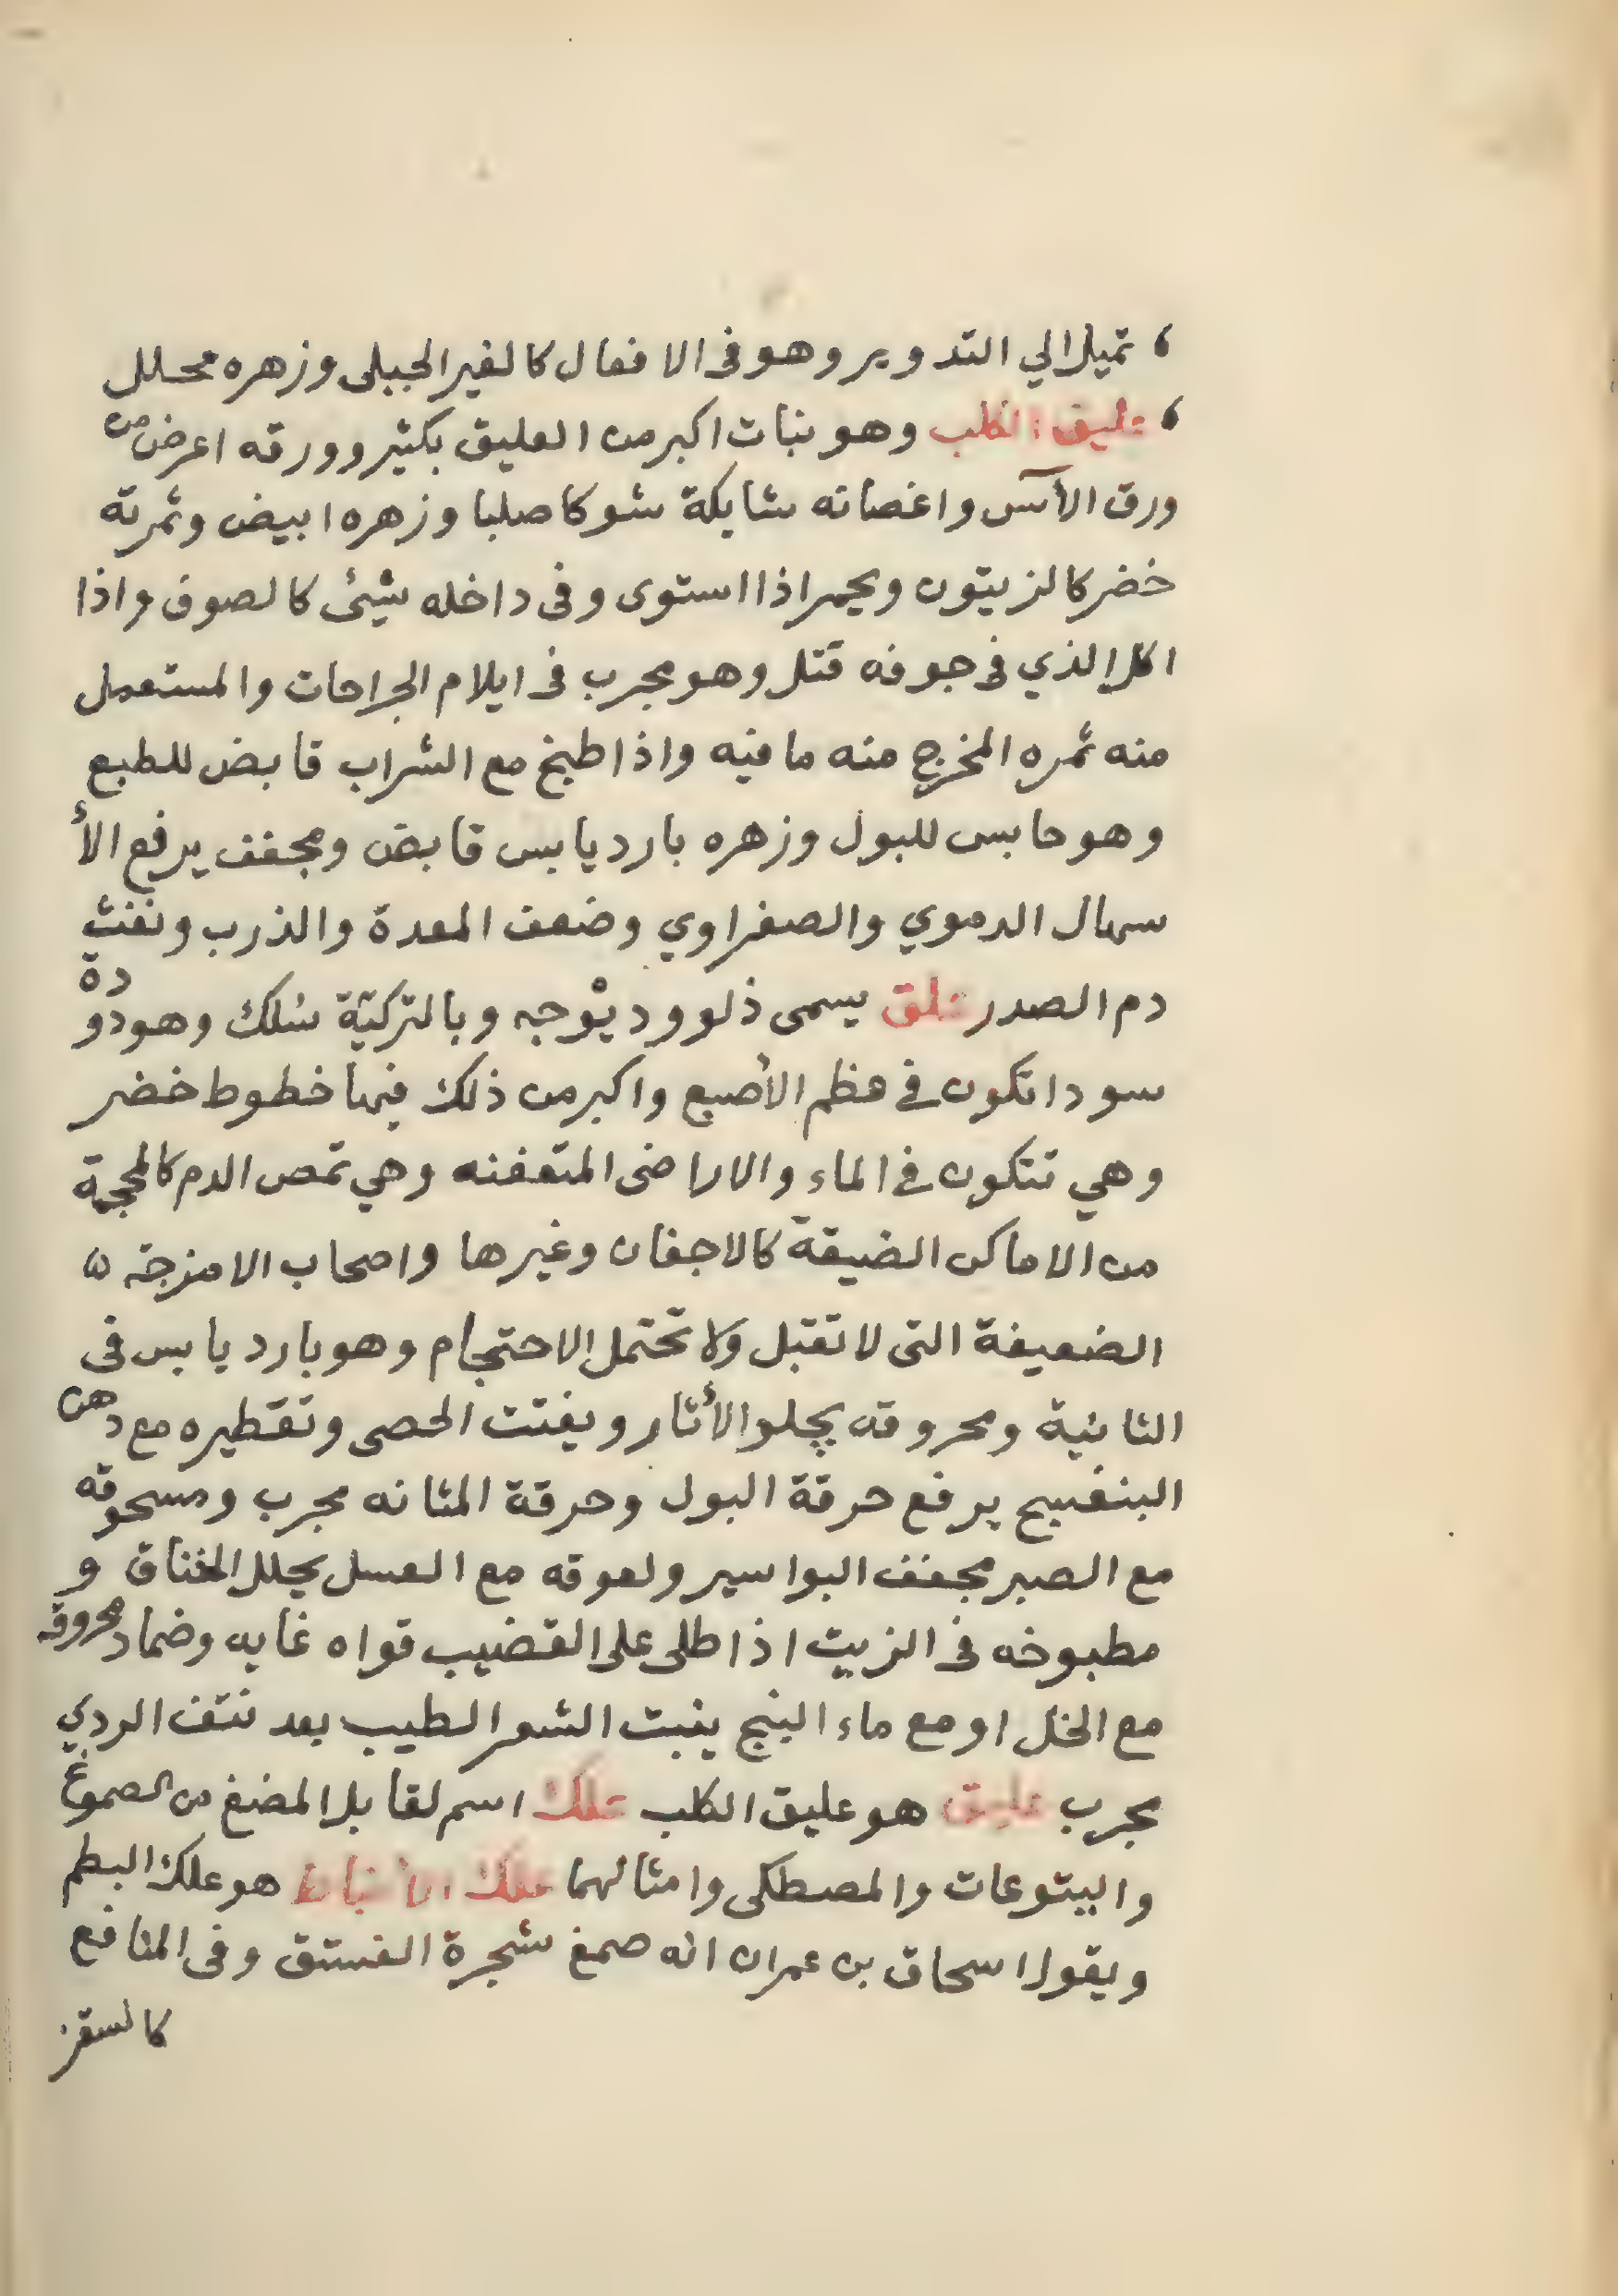 ، تميل الي التدوير وهو فى الافعال كالغير الجبلى وزهره محلل
، عليق الكلب وهو نبات اكبر من العليق بكثير وورقه اعرض من
ورق الآس واغصانه شايكة شوكا صلبا وزهره ابيض وثمرته
خضر كالزيتون ويحمر اذا استوى وفى داخله شيئ كالصوف واذا
اكل الذي فى جوفه قتل وهو مجرب فى ايلام الجراحات والمستعمل
منه ثمره المخرج منه ما فيه واذا طبخ مع الشراب قابض للطبع
وهو حابس للبول وزهره بارد يابس قابض ومجفف يرفع الأ
سهال الدموي والصفراوي وضعف المعدة والذرب ونفث
دم الصدر علق يسمى ذلو وديوْجه وبالتركيّة سلك وهو دودة
سودا تكون في عظم الأصبع واكبر من ذلك فيها خطوط خضر
وهي تتكون في الماء والاراضى المتعفنه وهي تمص الدم كالمحجمة
من الاماكن الضيقة كالاجفان وغيرها واصحاب الامزجة
الضعيفة التى لا تقبل ولا تحتمل الاحتجام وهو بارد يابس فى
الثانية ومحروقه يجلو الأثار ويفتت الحصى وتقطيره مع دهن
البنفسج يرفع حرقة البول وحرقة المثانه مجرب ومسحوقه
مع الصبر مجفف البواسير ولعوقه مع العسل يحلل الخناق و
مطبوخه فى الزيت اذا طلى على القضيب قواه غايه وضماد محروقه
مع الخل او مع ماء البنج ينبت الشعر الطيب بعد نتف الردي
مجرب عليق هو عليق الكلب علك اسم لقابل المضغ من الصموغ
واليتوعات والمصطكى وامثالهما علك الأنباط هو علك البطم
ويقول اسحاق بن عمران انه صمغ شجرة الفستق وفى المنافع
كالسقز